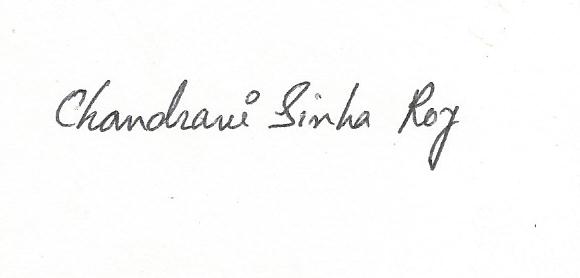 Chandrani Sinha Roy